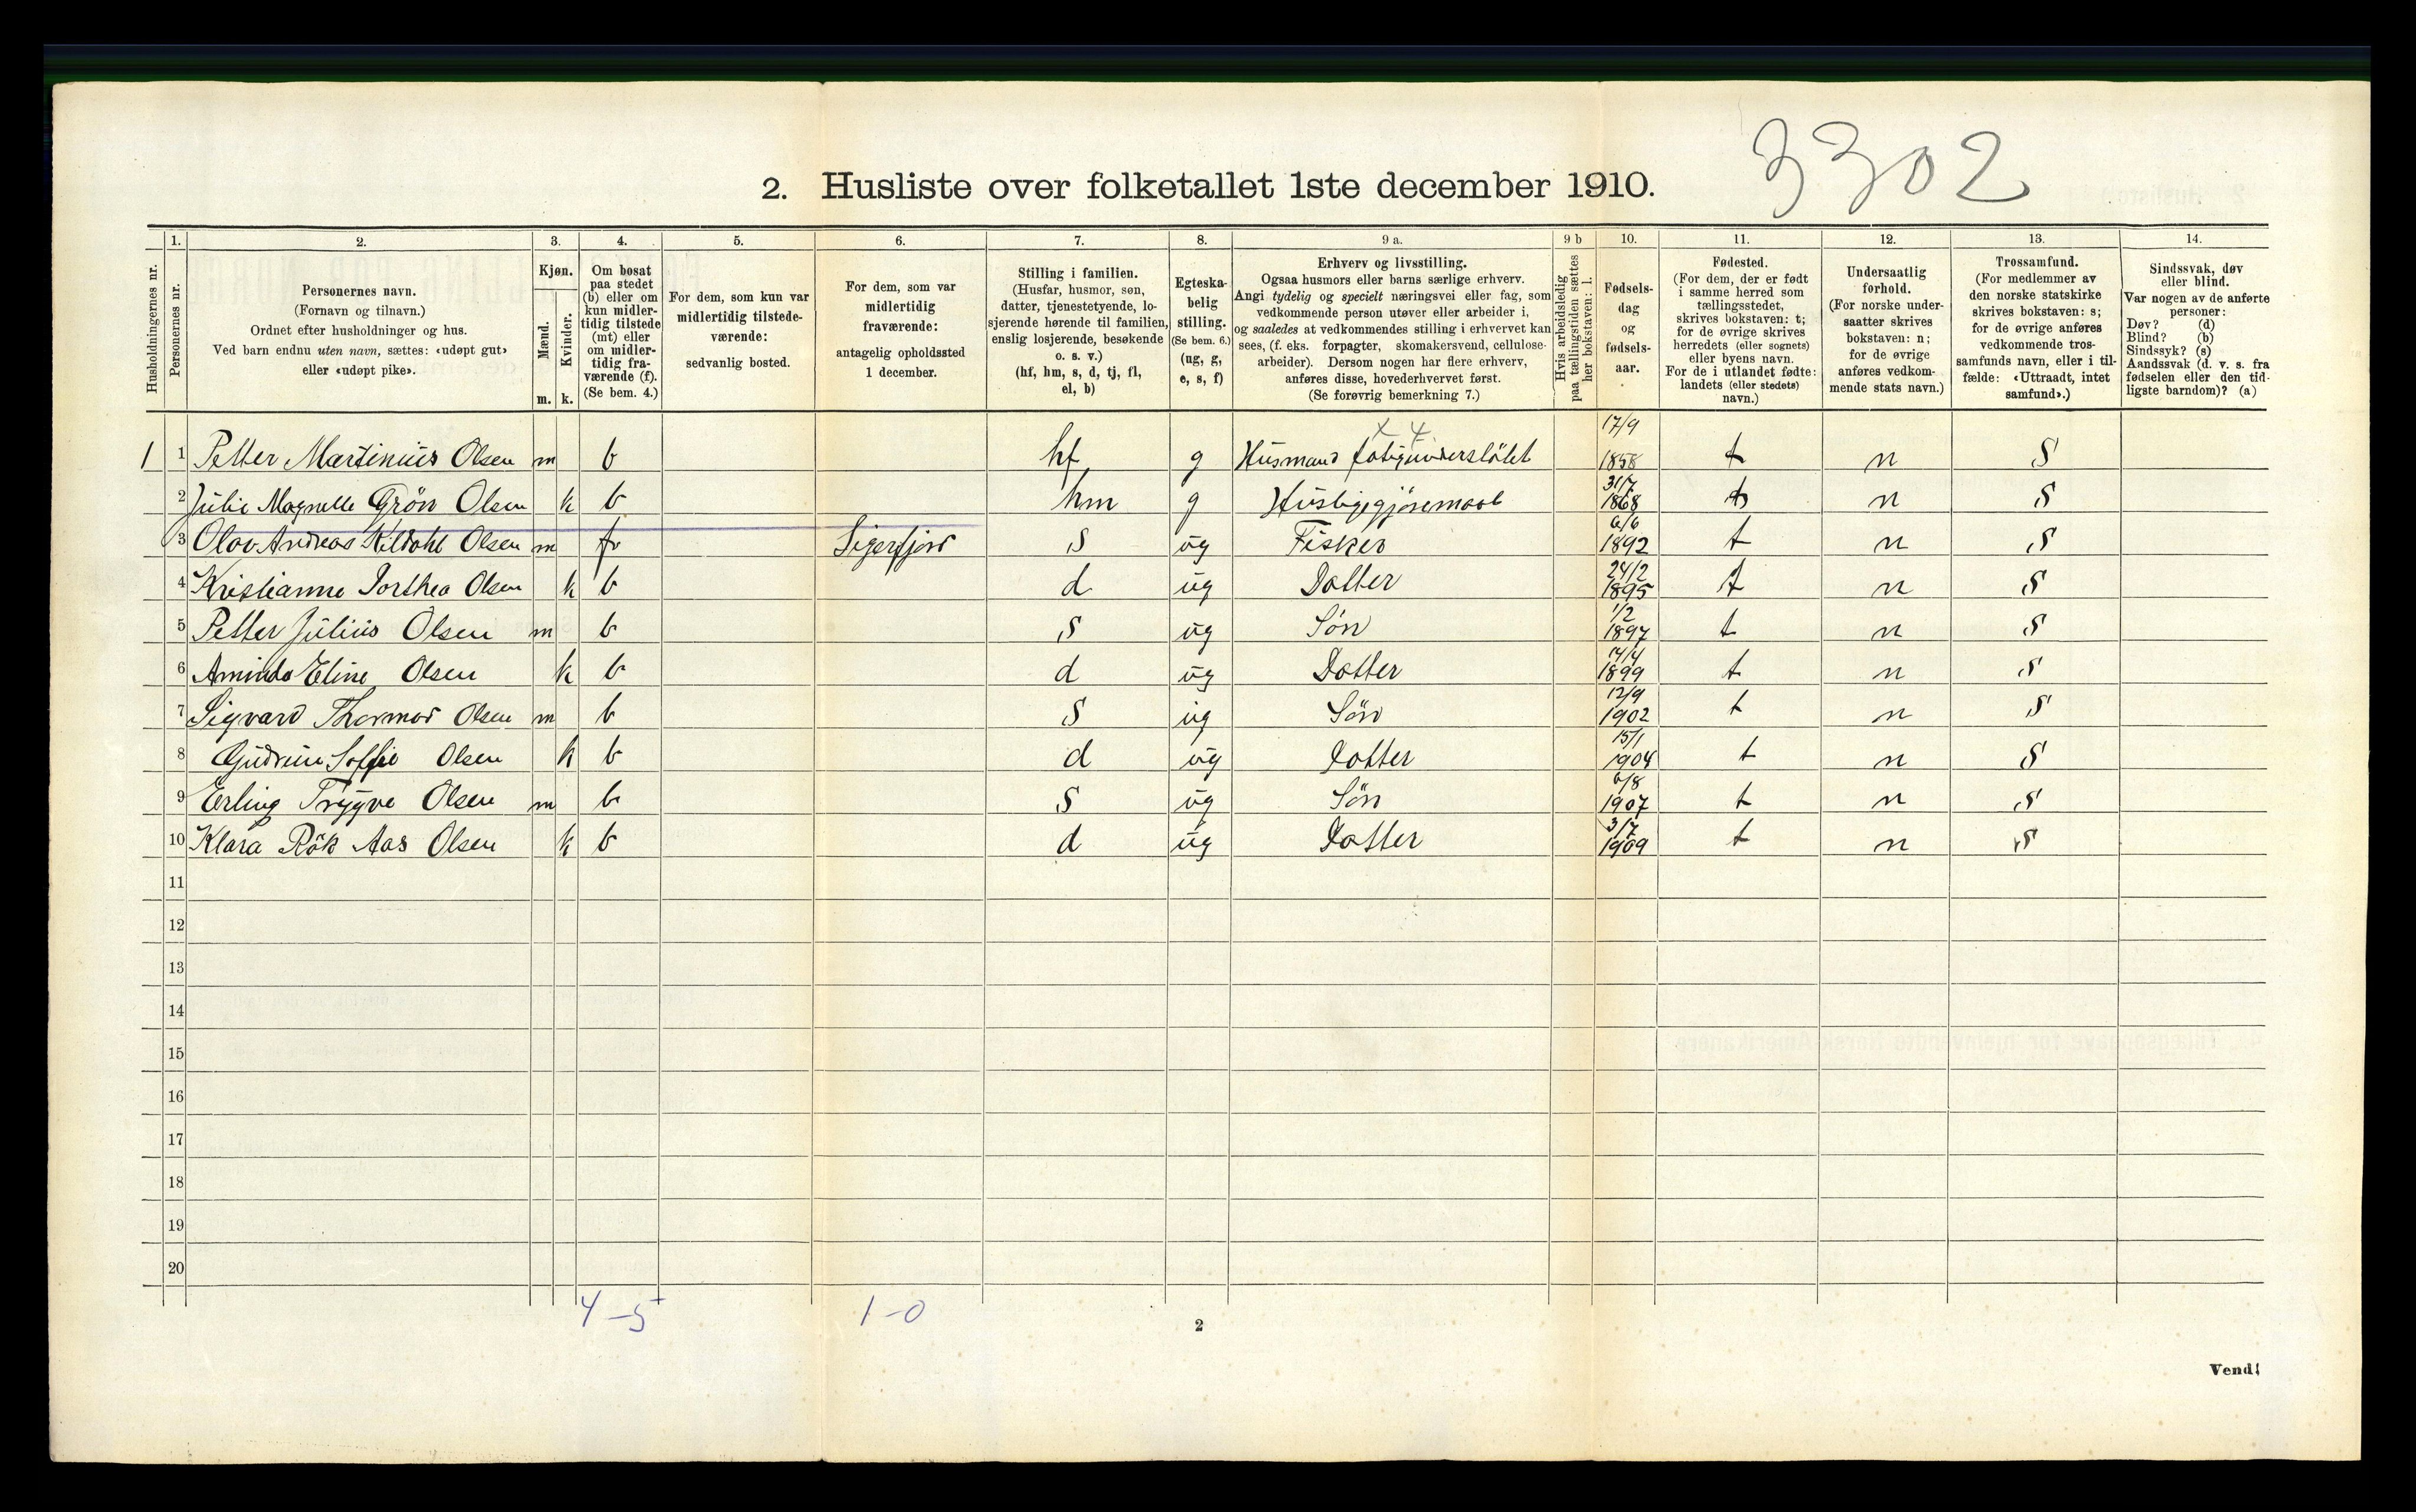 3302
2. Husliste over folketallet 1ste december 1910.
Husholdningernes nr.
1.
Personernes nr.
2.
Personernes navn.
(Fornavn og tilnavn.)
Ordnet efter husholdninger og hus.
Ved barn endnu uten navn, sættes: «udøpt gut»
eller «udøpt pike».
3.
Kjøn.
Mænd.
Kvinder.
m. k.
4.
Om bosat
paa stedet
(b) eller om
kun midler-
tidig tilstede
(mt) eller
om midler-
tidig fra-
værende (f).
(Se bem. 4.)
5.
For dem, som kun var
midlertidig tilstede-
værende:
sedvanlig bosted.
6.
For dem, som var
midlertidig
fraværende:
antagelig opholdssted
1 december.
7.
Stilling i familien.
(Husfar, husmor, søn,
datter, tjenestetyende, lo-
sjerende hørende til familien,
enslig losjerende, besøkende
o. s. v.)
(hf, hm, s, d, tj, fl,
el, b)
8.
Egteska-
belig
stilling.
(Se bem. 6.)
(ug, g,
e, s, f)
9 a.
Erhverv og livsstilling.
Ogsaa husmors eller barns særlige erhverv.
Angi tydelig og specielt næringsvei eller fag, som
vedkommende person utøver eller arbeider i,
og saaledes at vedkommendes stilling i erhvervet kan
sees, (f. eks. forpagter, skomakersvend, cellulose-
arbeider). Dersom nogen har flere erhverv,
anføres disse, hovederhvervet først.
(Se forøvrig bemerkning 7.)
9 b
Hvis arbeidsledig
paa tællingstiden sættes
her bokstaven: l.
10.
Fødsels-
dag
og
fødsels-
aar.
11.
Fødested.
(For dem, der er født
i samme herred som
tællingsstedet,
skrives bokstaven: t;
for de øvrige skrives
herredets (eller sognets)
eller byens navn.
For de i utlandet fødte:
landets (eller stedets)
navn.)
12.
Undersaatlig
forhold.
(For norske under-
saatter skrives
bokstaven: n;
for de øvrige
anføres vedkom-
mende stats navn.)
13.
Trossamfund.
(For medlemmer av
den norske statskirke
skrives bokstaven: s;
for de øvrige anføres
vedkommende tros-
samfunds navn, eller i til-
fælde: «Uttraadt, intet
samfund».)
14.
Sindssvak, døv
eller blind.
Var nogen av de anførte
personer:
Døv? (d)
Blind? (b)
Sindssyk? (s)
Aandssvak (d. v. s. fra
fødselen eller den tid-
ligste barndom)? (a)
x 4
1 1 Petter Martinius Olsen m b hf g Husmand fatigunderstøtet 17/9 1858 t n S
2 Julie Magnelle Grön Olsen k b hm g Husligegjøremaal 31/7 1868 t n S
3 Olav Andreas Kildahl Olsen m f Sigerfjord S ug Fisker 6/6 1892 t n S
4 Kristianne Dorthea Olsen k b d ug Datter 24/2 1895 t n S
5 Petter Julius Olsen m b S ug Søn 1/2 1897 t n S
6 Aminda Eline Olsen k b d ug Datter 14/4 1899 t n S
7 Sigvard Thormod Olsen m b S ug Sön 12/9 1902 t n S
8 Gudrun Soffie Olsen k b d ug Datter 15/1 1904 t n S
9 Erling Trygve Olsen m b S ug Sön 6/8 1907 t n S
10 Klara Rök Aas Olsen k b d ug Datter 3/7 1909 t n S
11
12
13
14
15
16
17
18
19
20
4-5 1-0
2
Vend!